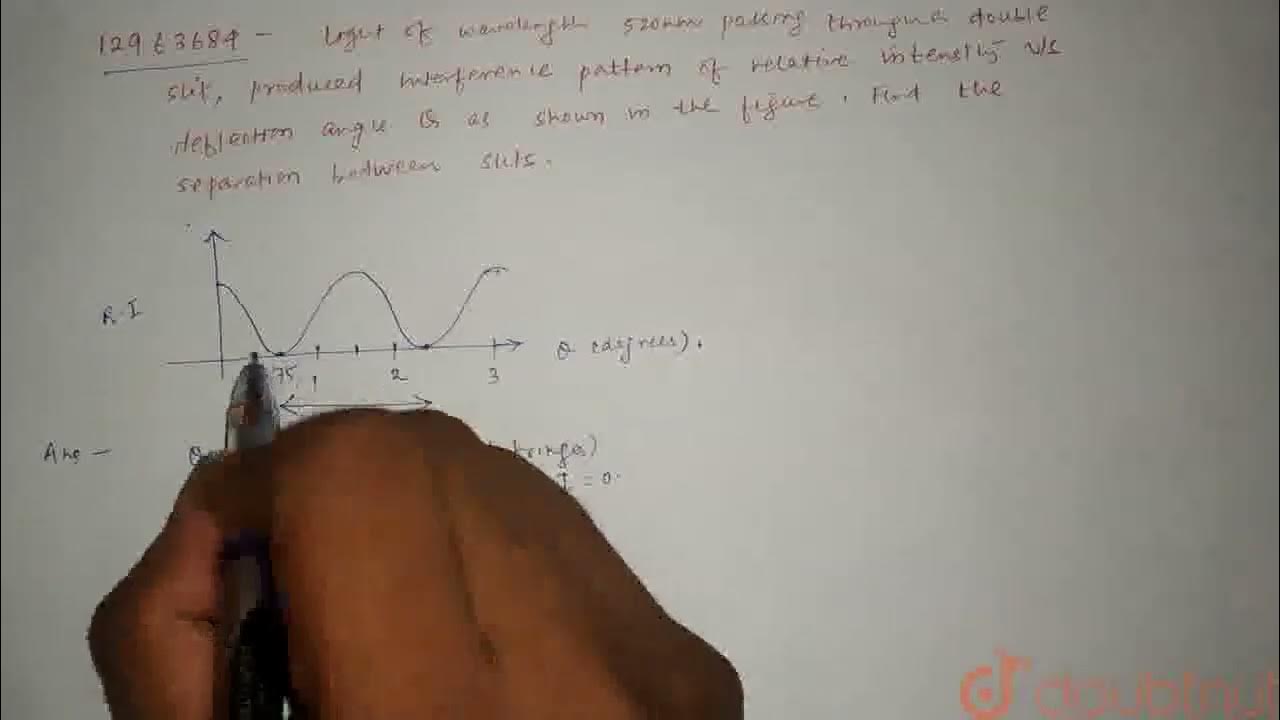 12963684 - Light of wavelength 520nm passing through a double
slit, produced interference pattern of relative intensity v/s
deflection angle θ as shown in the figure. Find the
separation between slits.
R.I
θ (degrees).
75 1 2 3
Ans - fringes)
I = 0.
doubtnut